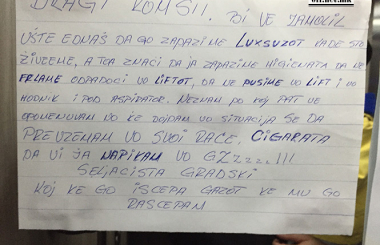 DRAGI KOMŠII. BI VE ZAMOLIL
UŠTE EDNAŠ DA GO ZAPAZIME LUXSUZOT KADE ŠTO
ŽIVEEME, A TOA ZNAČI DA JA ZAPAZIME HIGIENATA DA NE
FRLAME ODPADOCI VO LIFTOT, DA NE PUŠIME VO LIFT I VO
HODNIK I POD ASPIRATOR. NEZNAM PO KOJ PAT VE
OPOMENUVAM NO KE DOJDAM VO SITUACIJA SE DA
PREVZEMAM VO SVOI RACE. CIGARATA
DA VI JA NAPIKAM VO GZzzz.!!!
SELJACIŠTA GRADSKI
KOJ KE GO ISCEPA GAZOT KE MU GO
RASCEPAM